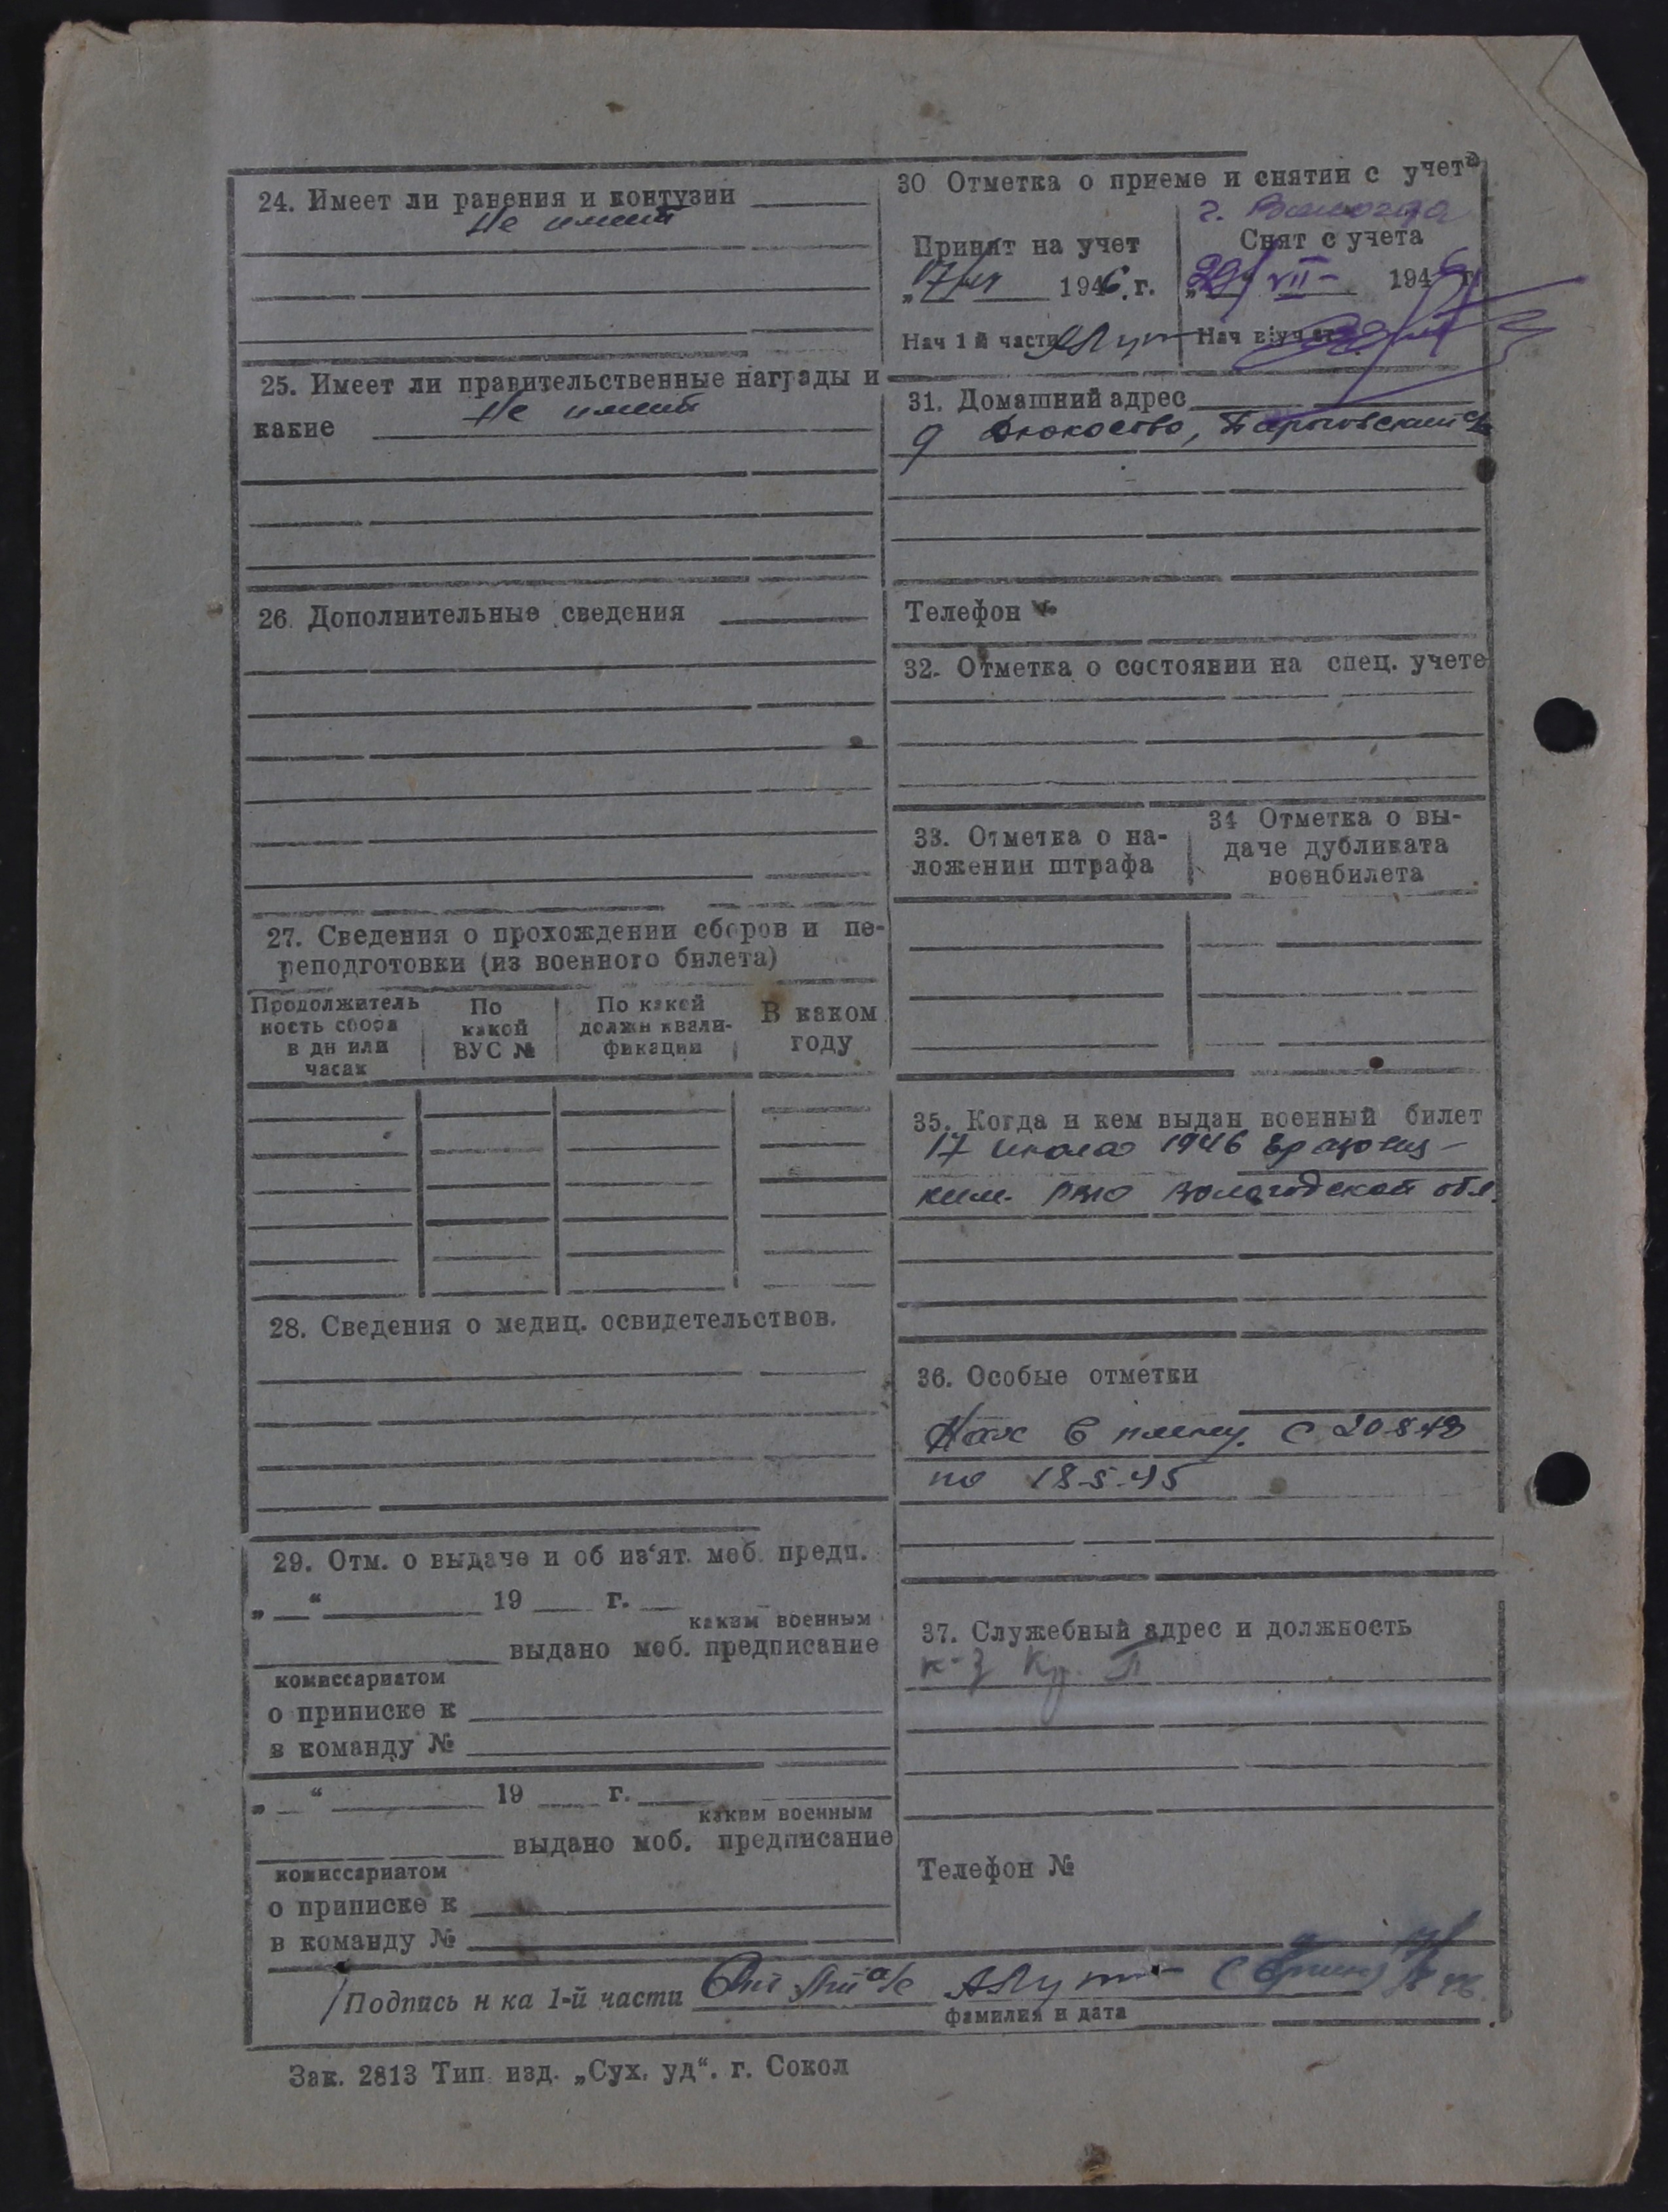 24. Имеет ли ранения и контузии
Не имеет
25. Имеет ли правительственные награды и
какие Не имеет
26. Дополнительные сведения
27. Сведения о прохождении сборов и пе-
реподготовки (из военного билета)
Продолжитель
ность сбора
в дн или
часах
По
какой
ВУС №
По какой
должн квали-
фикации
В каком
году
28. Сведения о медиц. освидетельствов.
29. Отм. о выдаче и об из‘ят. моб. предп.
„ “ 19 г.
каким военным
выдано моб. предписание
комиссариатом
о приписке к
в команду №
„ “ 19 г.
каким военным
выдано моб. предписание
комиссариатом
о приписке к
в команду №
30 Отметка о приеме и снятии с учета
г. Вологда
Принят на учет
„17/VII 1946.г.
Нач 1 й части
Снят с учета
„29/ VII- 194 г.
Нач в/уч
31. Домашний адрес
д
Телефон
32. Отметка о состоянии на спец. учете
33. Отметка о на-
ложении штрафа
34 Отметка о вы-
даче дубликата
военбилета
35. Когда и кем выдан военный билет
17 июля 1946
ким. РВК Вологодской обл.
36. Особые отметки
в плену. с 20-8-42
по 18-5-45
37. Служебный адрес и должность
к-з Кр. П
Телефон №
Подпись н ка 1-й части
фамилия и дата
Зак. 2813 Тип. изд. „Сух. уд“. г. Сокол